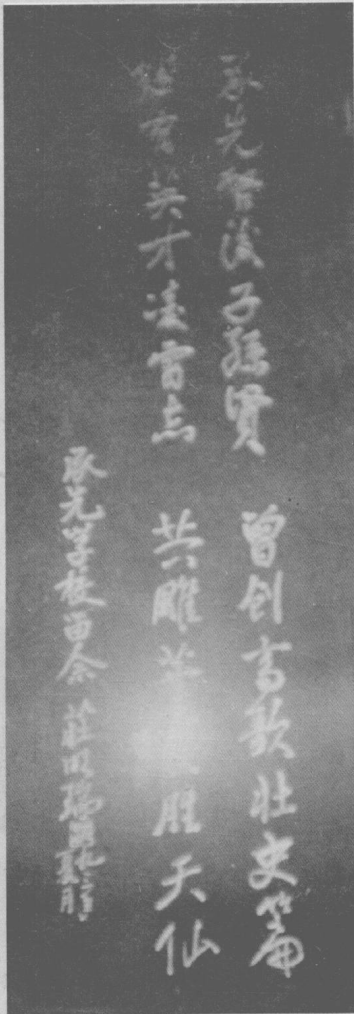 承先啓後子孫賢 曾创高歌壮史篇
育英才凌霄志 共雕 胜天仙
承先学校留念 莊明瑞